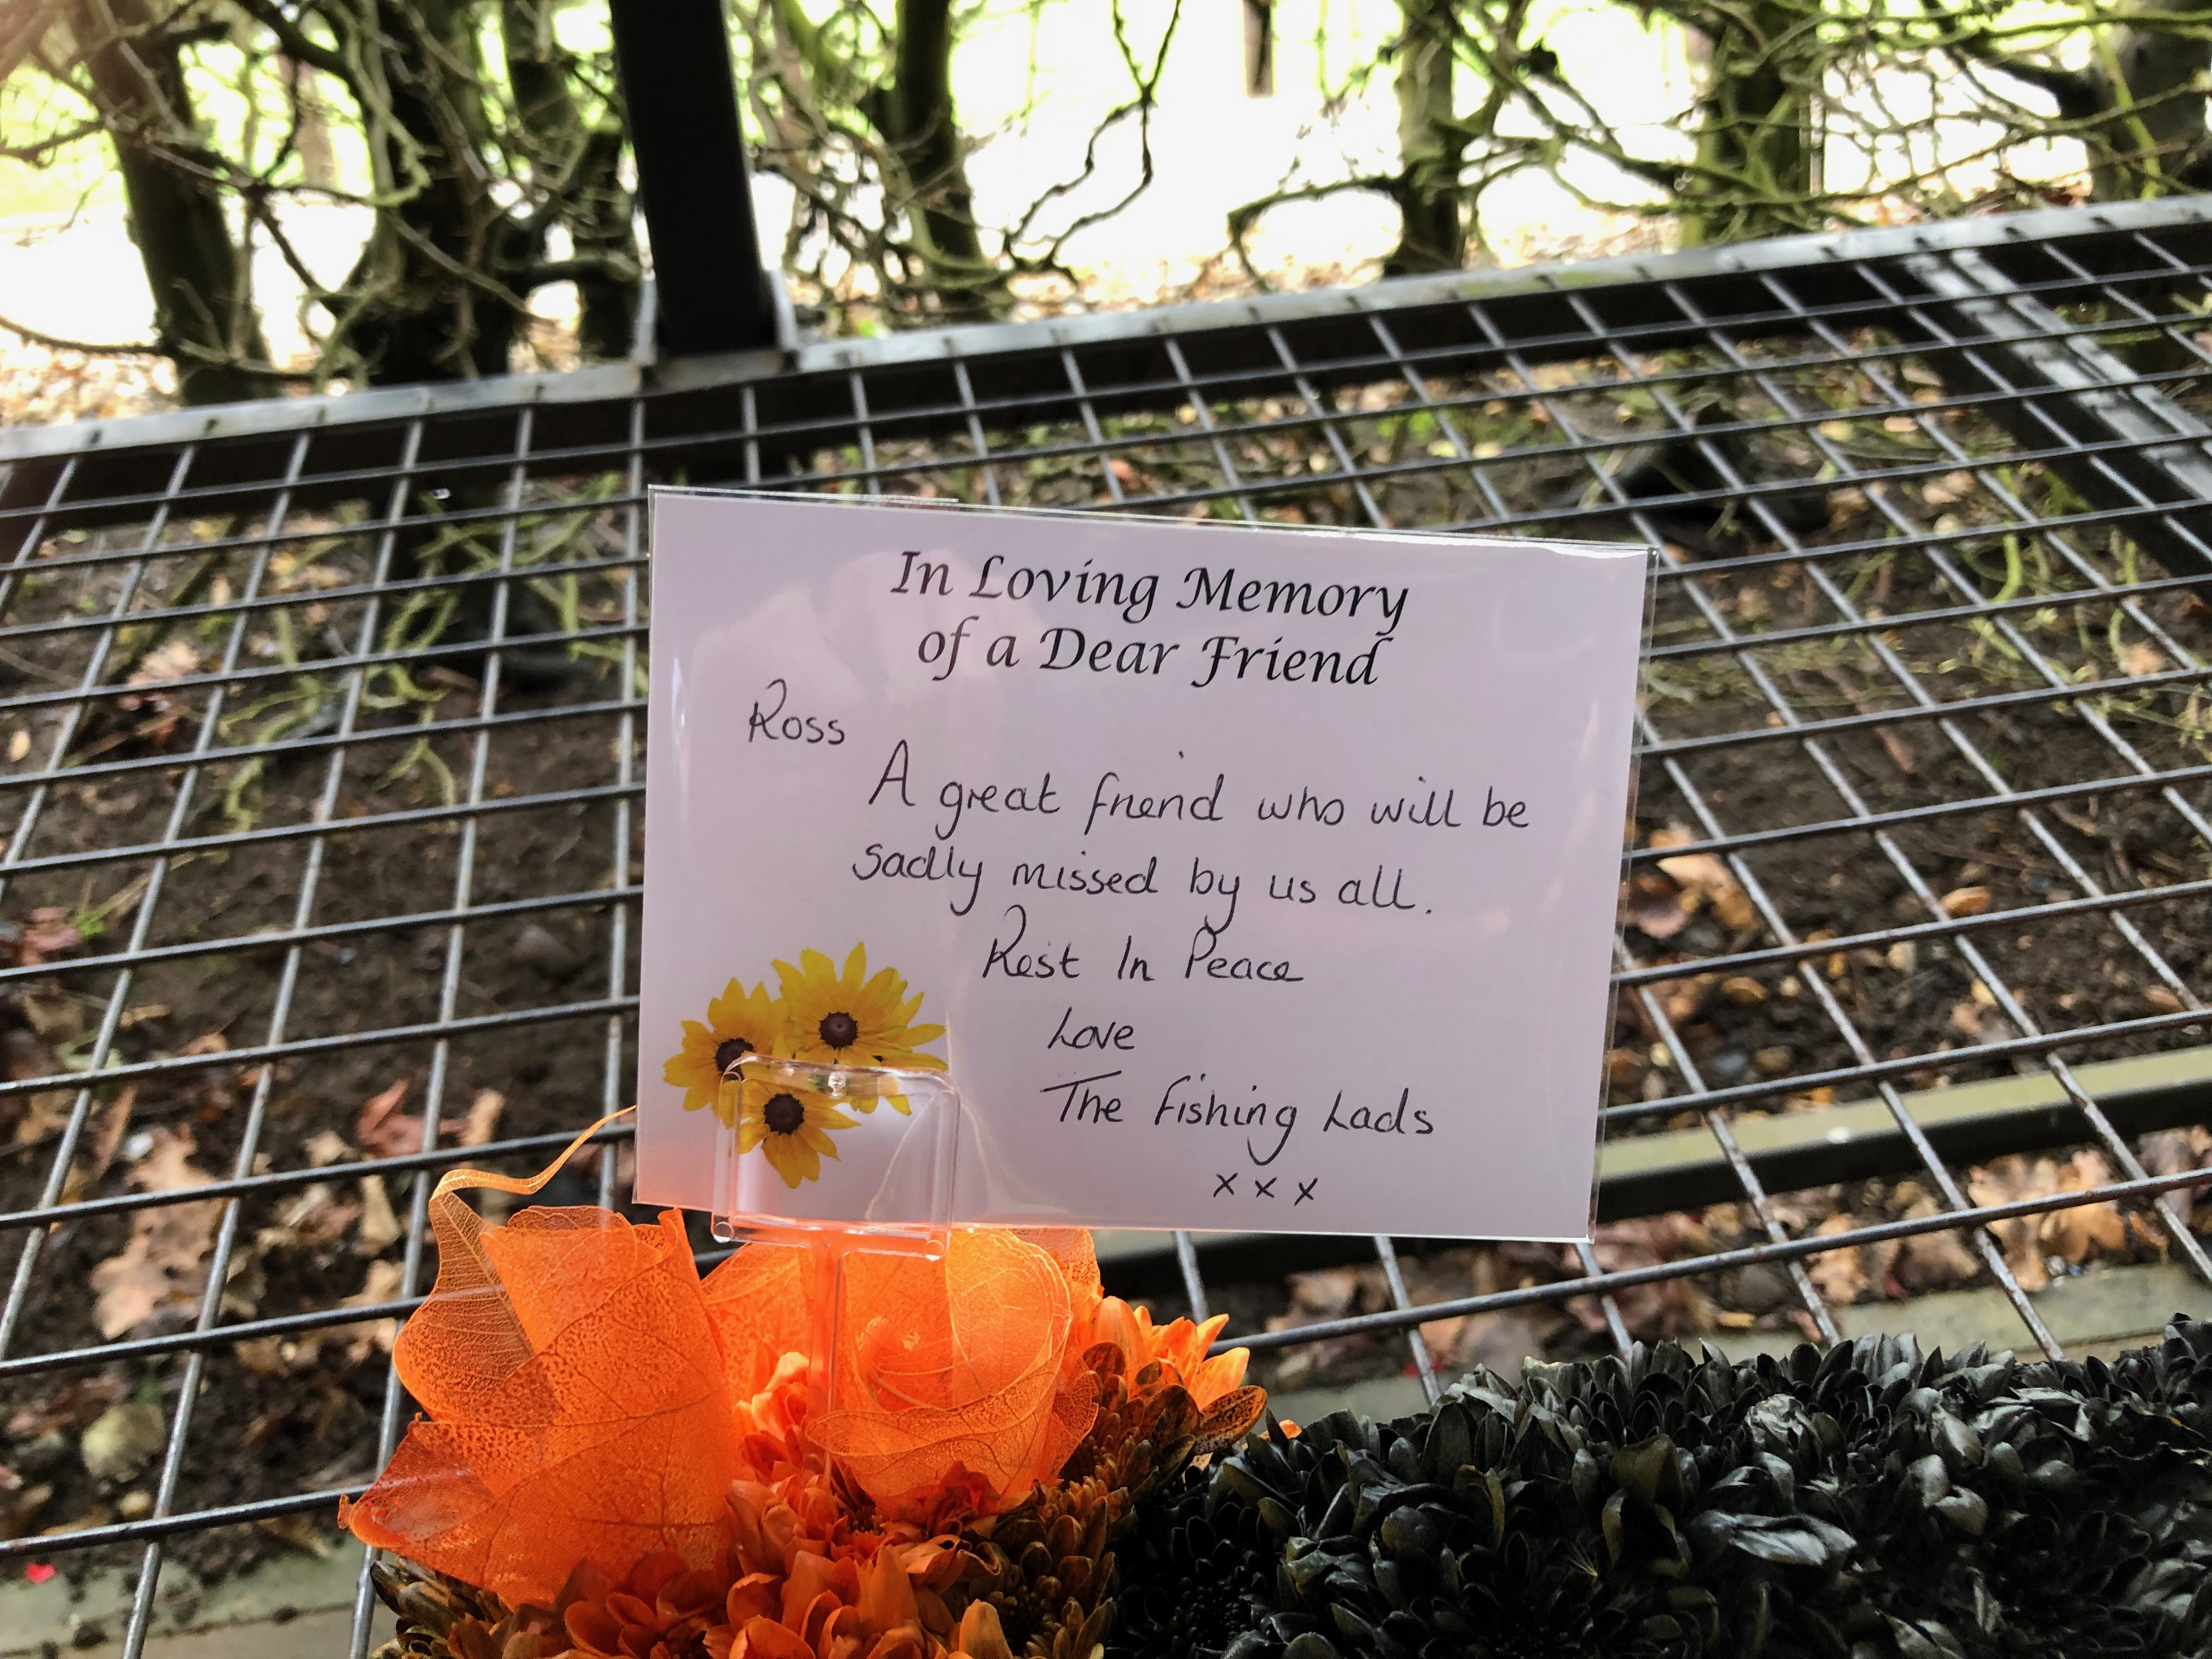 In Loving Memory
of a Dear Friend
Ross
A great friend who will be
sadly missed by us all.
Rest In Peace
Love
The Fishing Lads
x x x